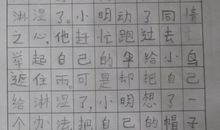 淋湿了,小明动了同情
之心,他赶忙跑过去
举起自己的伞给小鸟
遮住雨。可是却把自己
给淋湿了,小明想了一
个办法把自己的帽子